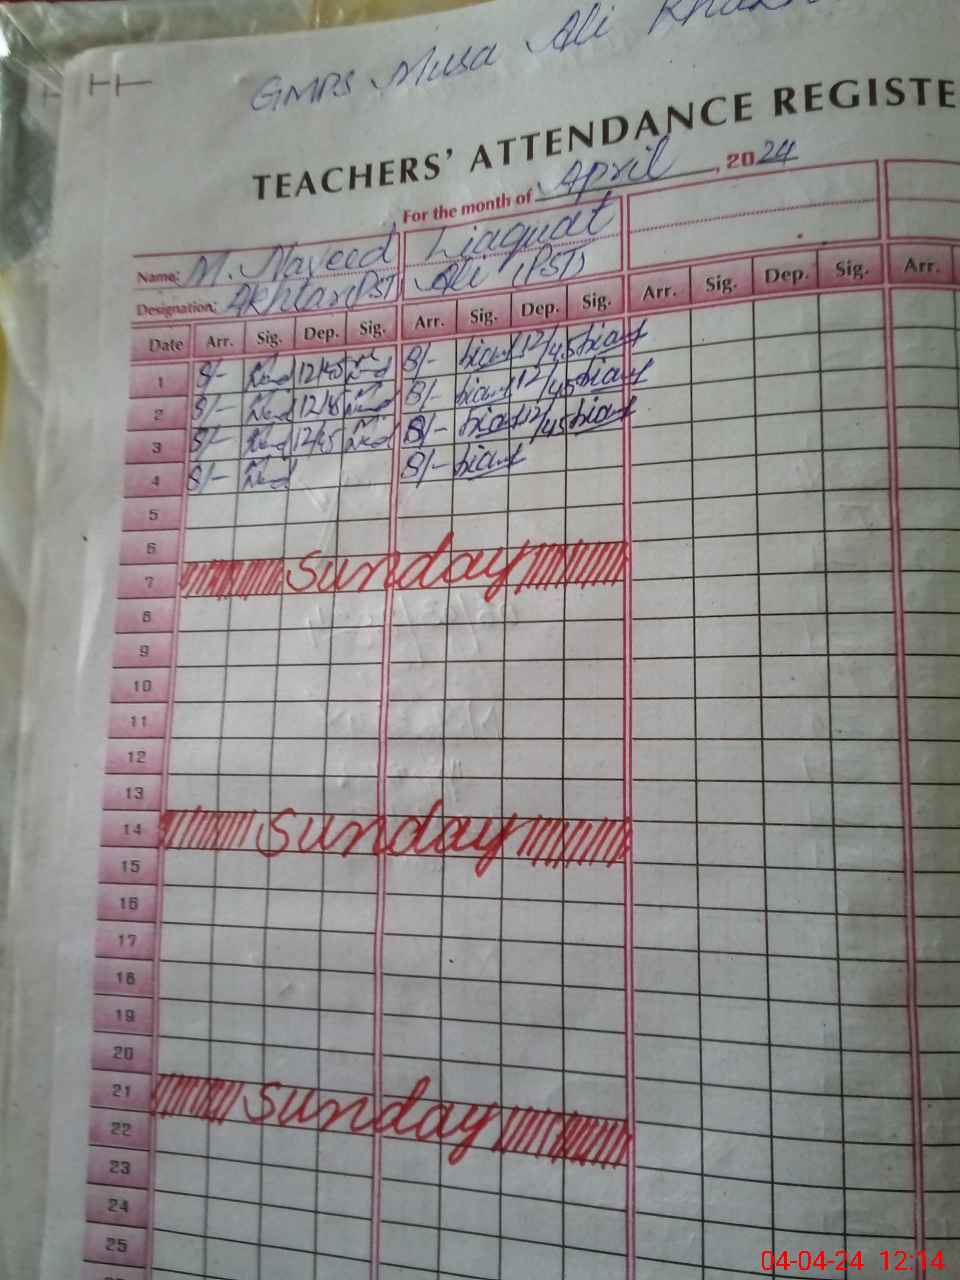 GMPS Musa Ali
TEACHERS' ATTENDANCE REGISTE
For the month of April, 2024
Name: M. Naveed Liaquat
Designation: Akhtar (PST) Ali (PST)
Date Arr. Sig. Dep. Sig. Arr. Sig. Dep. Sig. Arr. Sig. Dep. Sig. Arr.
1 8/- 12/45 8/- 12/45
2 8/- 12/45 8/- 12/45
3 8/- 12/45 8/- 12/45
4 8/- 8/-
5
6
7 Sunday
8
9
10
11
12
13
14 Sunday
15
16
17
18
19
20
21 Sunday
22
23
24
25
04-04-24 12:14